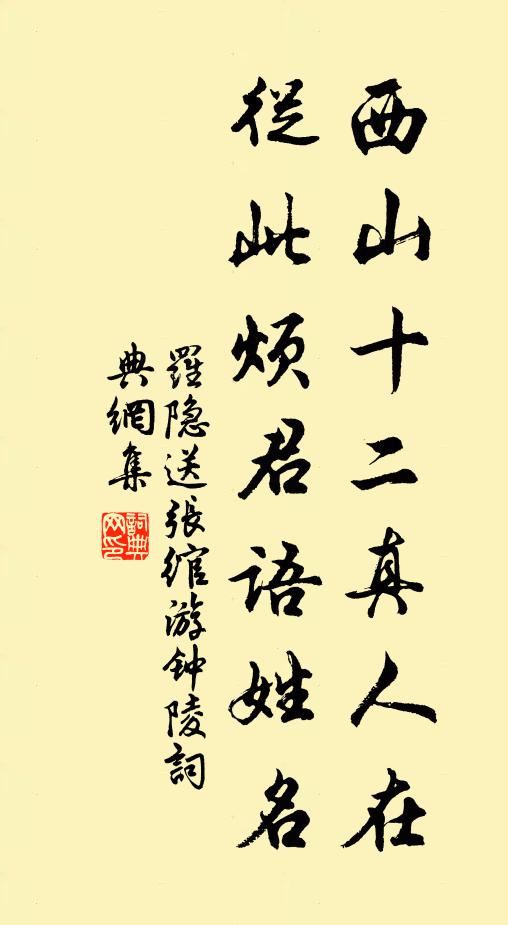 西山十二真人在
從此煩君語姓名
羅隐送張綰游钟陵詞
典網集
詞典網印